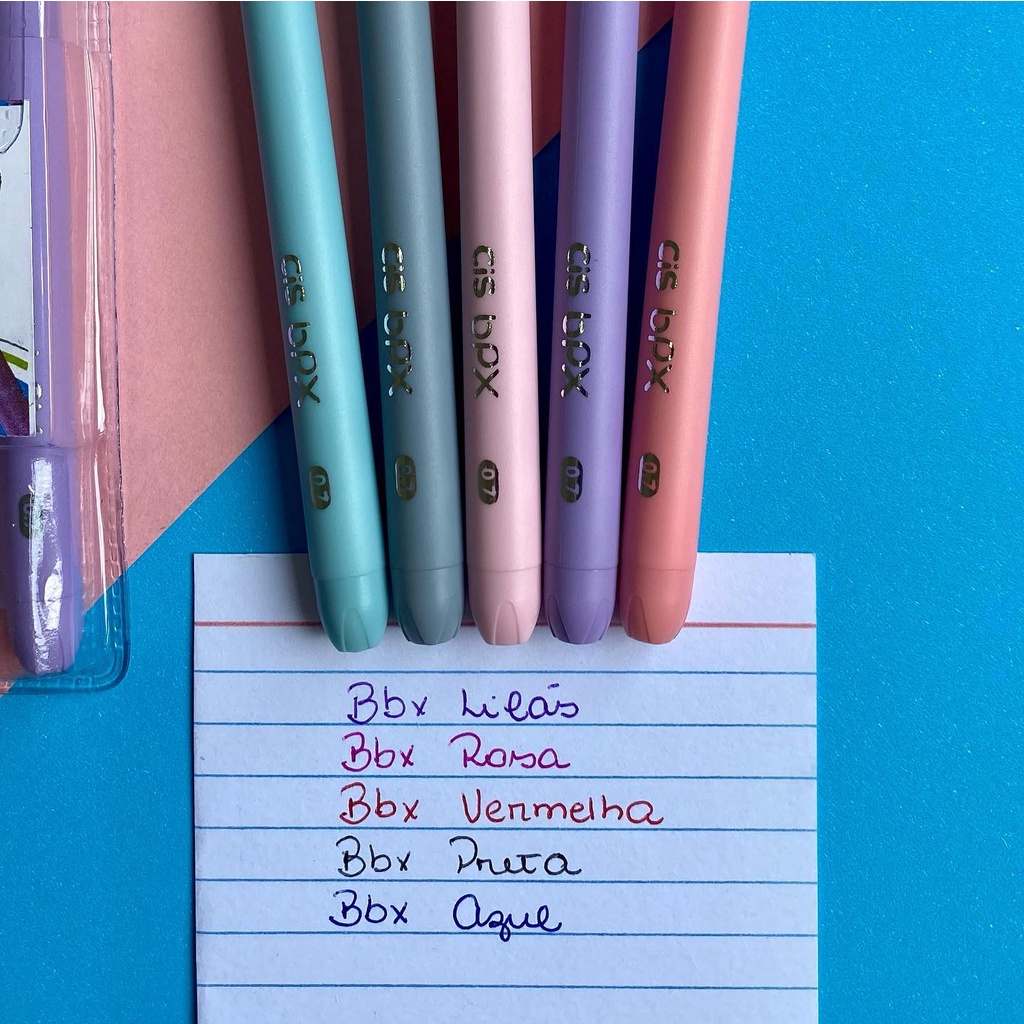 cis bpx 0.7
cis bpx 0.7
cis bpx 0.7
cis bpx 0.7
cis bpx 0.7
Bbx Lilás
Bbx Rosa
Bbx Vermelha
Bbx Preta
Bbx Azul